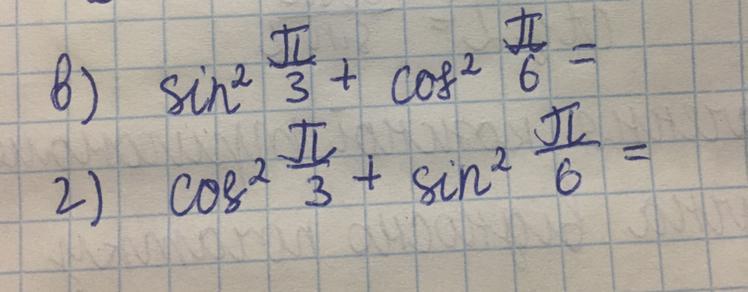 в) sin² π/3 + cos² π/6 =
г) cos² π/3 + sin² π/6 =